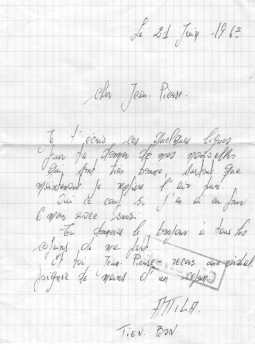 Le 21 Juin 1963
Cher Jean. Pierre.
Je t'écris ces quelques lignes
pour te donner de mes nouvelles
qui sont très bonnes, surtout que
maintenant je respire l'air pur.
Oui ce coup si j'en ai
mon
Tu donneras le bonjour à tous les
copains de ma part.
Et toi Jean. Pierre reçois une
poignée de d'un copain
ATTILA.
TIEN. BON